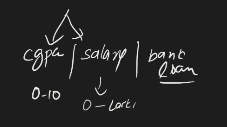 cgpa | salary | bank
loan
0-10
0-